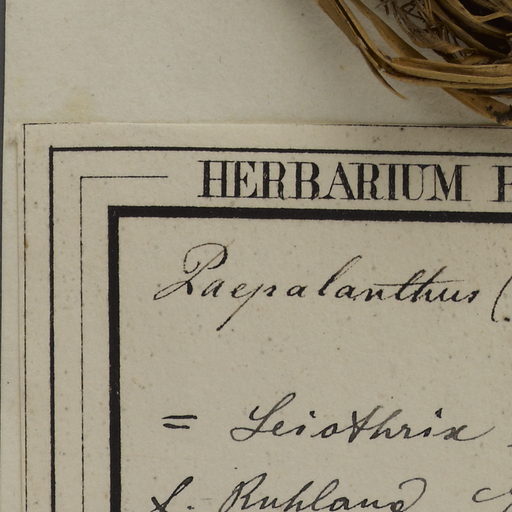 HERBARIUM
Paepalanthus (
= Leiothrix
f. Ruhland